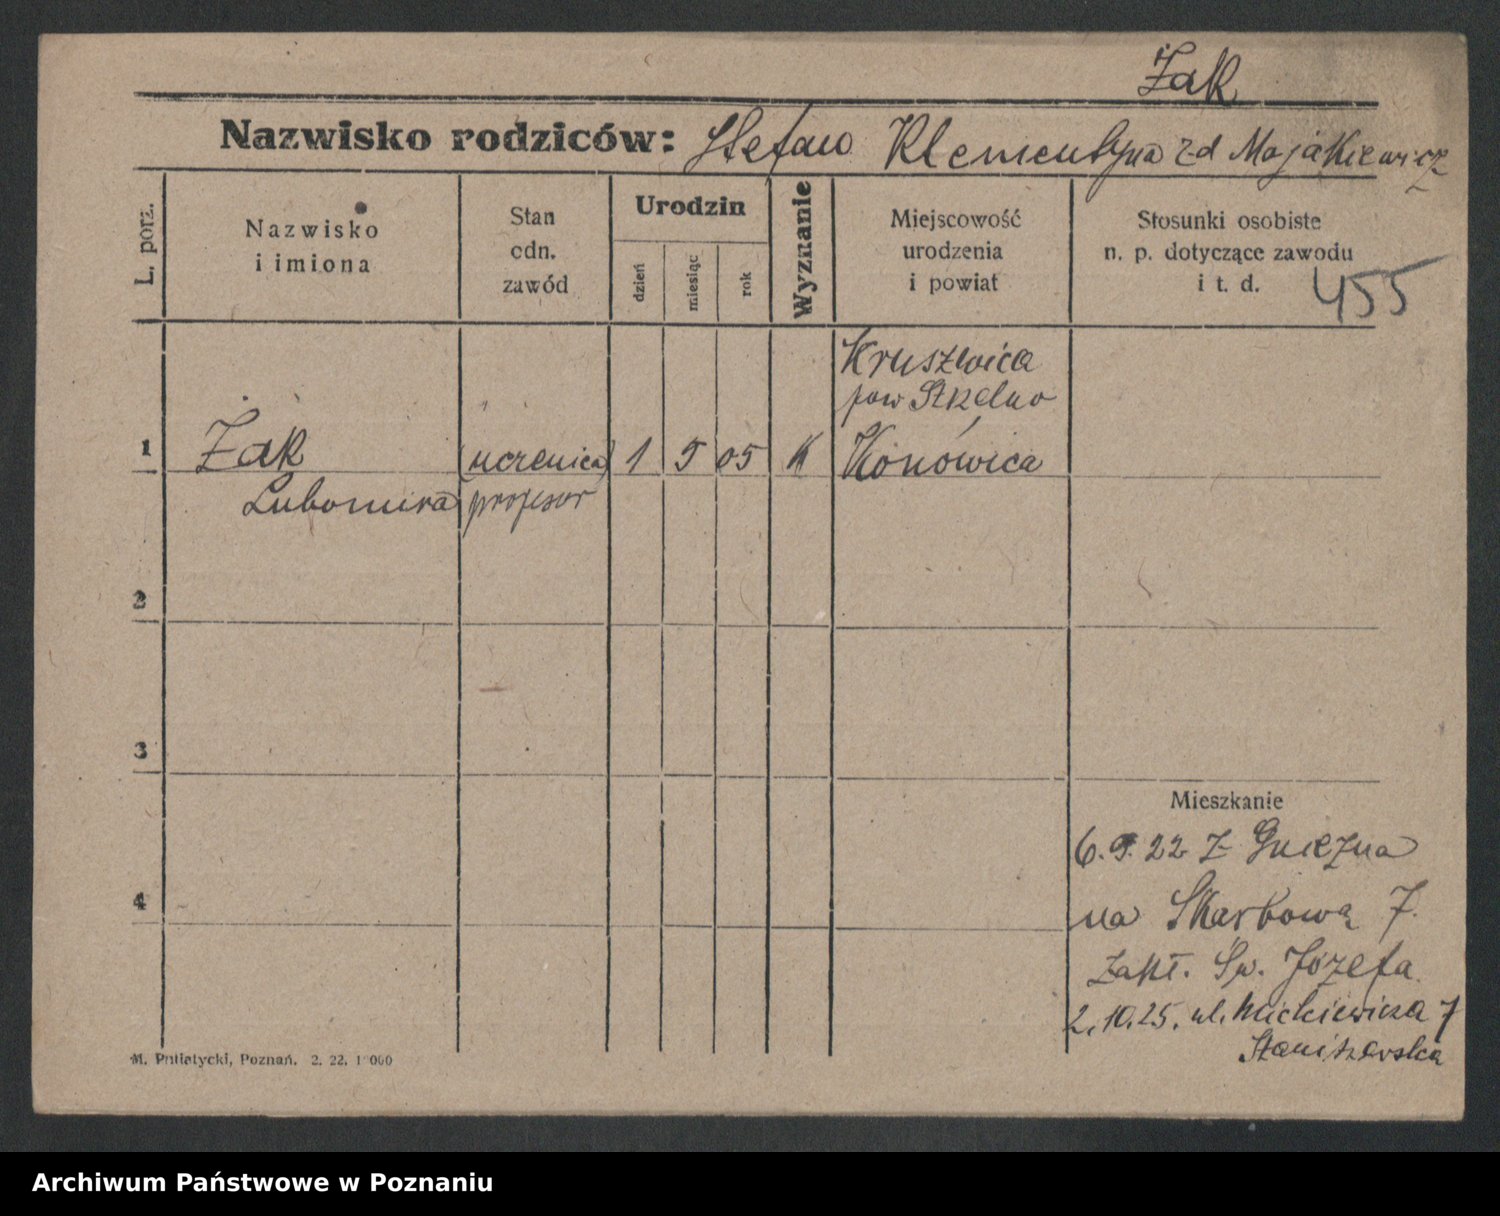 Żak
Nazwisko rodziców: Stefan Klementyna z d Majakiewicz
L. porz.
Nazwisko
i imiona
Stan
cdn.
zawód
Urodzin
dzień
miesiąc
rok
Wyznanie
Miejscowość
urodzenia
i powiat
Stosunki osobiste
n. p. dotyczące zawodu
i t. d.
455
Kruszwica
pow Strzelno
1 Żak (uczenica) 1 5 05 K Konówica
Lubomira profesor
2
3
Mieszkanie
6. 9. 22 z Gniezna
4
na Skarbową 7.
Zakł. Św. Józefa
2.10.25. ul. Mickiewicza 7
Staniszewska
M. Putiatycki, Poznań. 2. 22. 1 000
Archiwum Państwowe w Poznaniu